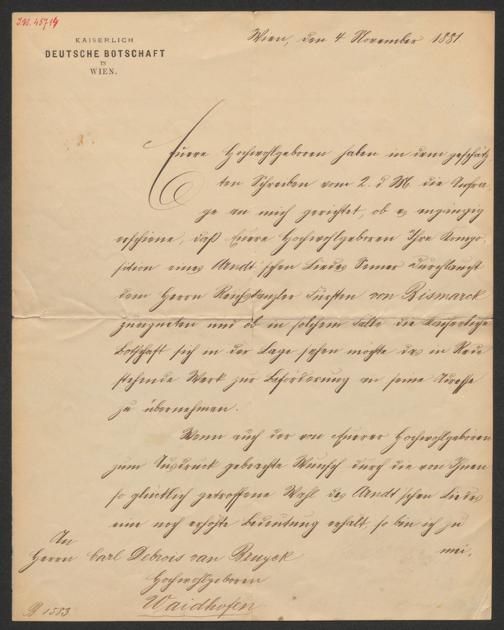 I.N. 45714
KAISERLICH
DEUTSCHE BOTSCHAFT
IN
WIEN.
Wien, den 4 November 1881.
Euere Hochwohlgeboren haben in dem geschätz
ten Schreiben vom 2. d M. die Anfra
ge an mich gerichtet, ob es angängig
erschiene, daß Euere Hochwohlgeboren Ihre Kompo
sition eines Arndt'schen Liedes Seiner Durchlaucht
dem Herrn Reichskanzler Fürsten von Bismarck
zueigneten und ob in solchem Falle die Kaiserliche
Botschaft sich in der Lage sehen möchte das in Rede
stehende Werk zur Beförderung an seine Adresse
zu übernehmen.
Wenn auch der von Euerer Hochwohlgeboren
zum Ausdruck gebrachte Wunsch durch die von Ihnen
so glücklich getroffene Wahl des Arndt'schen Liedes
eine noch erhöhte Bedeutung erhält so bin ich zu
mei.
An
Herrn Carl Debrois van Bruyck
Hochwohlgeboren
Waidhofen
1583